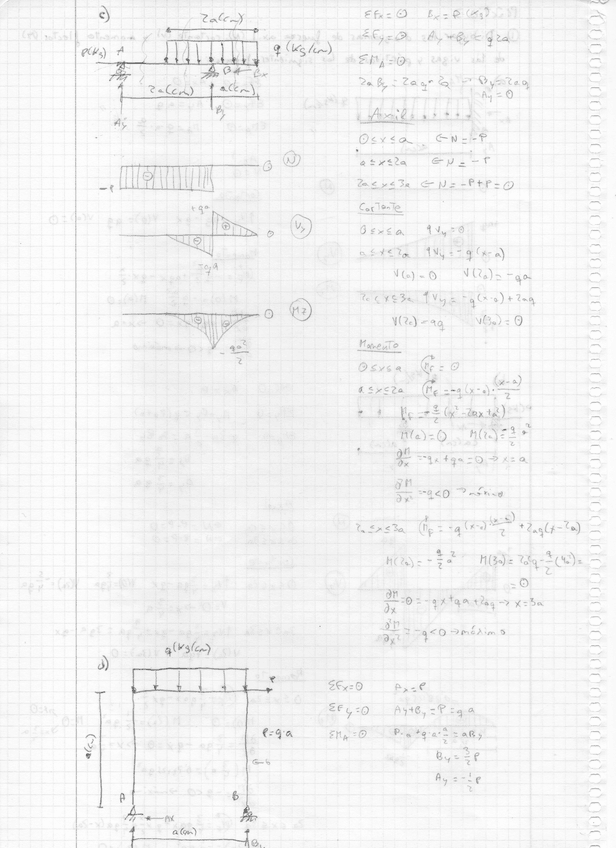 c)
2a(cm)
P(kg) A
q(kg/cm)
B
2a(cm) a(cm)
Ay
By
0 N
-P
+qa
Vy
0
-qa
0 Mz
-qa²/2
ΣFx=0 Bx=P (kg)
ΣFy=0 Ay+By=q2a
ΣMA=0
2aBy=2aq·2a By=2aq
Ay=0
Axil
0≤x≤a N=-P
a≤x≤2a N=-P
2a≤x≤3a N=-P+P=0
Cortante
0≤x≤a Vy=0
a≤x≤2a Vy=-q(x-a)
V(a)=0 V(2a)=-qa
2a≤x≤3a Vy=-q(x-a)+2aq
V(2a)=aq V(3a)=0
Momento
0≤x≤a MF=0
a≤x≤2a MF=-q(x-a)·(x-a)/2
MF=-q/2(x²-2ax+a²)
M(a)=0 M(2a)=-q/2 a²
∂M/∂x=-qx+qa=0→x=a
∂²M/∂x²=-q<0→máximo
2a≤x≤3a MF=-q(x-a)(x-a)/2+2aq(x-2a)
M(2a)=-q/2 a²
=0
∂M/∂x=0=-qx+qa+2aq→x=3a
∂²M/∂x²=-q<0→máximo
d)
q(kg/cm)
P
P=q·a
a(cm)
A B
Ax
a(cm)
ΣFx=0 Ax=P
ΣFy=0 Ay+By=P=q·a
ΣMA=0 P·a+q·a·a/2=aBy
By=3/2P
Ay=-1/2P